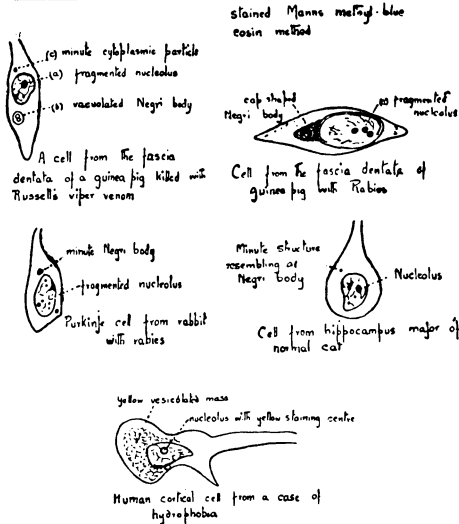 stained Manns methyl-blue
eosin method
(c) minute cytoplasmic particle
(a) fragmented nucleolus
(b) vacuolated Negri body
A cell from the fascia
dentata of a guinea pig killed with
Russell's viper venom
cap shaped
Negri body
(a) fragmented
nucleolus
Cell from the fascia dentata of
guinea pig with Rabies
minute Negri body
fragmented nucleolus
Purkinje cell from rabbit
with rabies
Minute structure
resembling a
Negri body
Nucleolus
Cell from hippocampus major of
normal cat
yellow vesiculated mass
nucleolus with yellow staining centre
Human cortical cell from a case of
hydrophobia